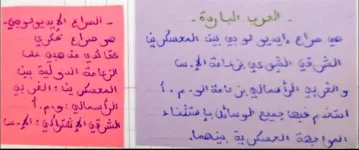 - الحرب الباردة -
هي صراع إيديولوجي بين المعسكرين
الشرقي الشيوعي بزعامة الإ.س
والغربي الرأسمالي بزعامة الو.م.أ
استخدم فيها جميع الوسائل باستثناء
المواجهة العسكرية بينهما.
- الصراع الإيديولوجي -
هو صراع فكري
عقائدي مذهبي على
الزعامة الدولية بين
المعسكرين: الغربي
الرأسمالي: و.م.أ
الشرقي الإشتراكي: الإ.س